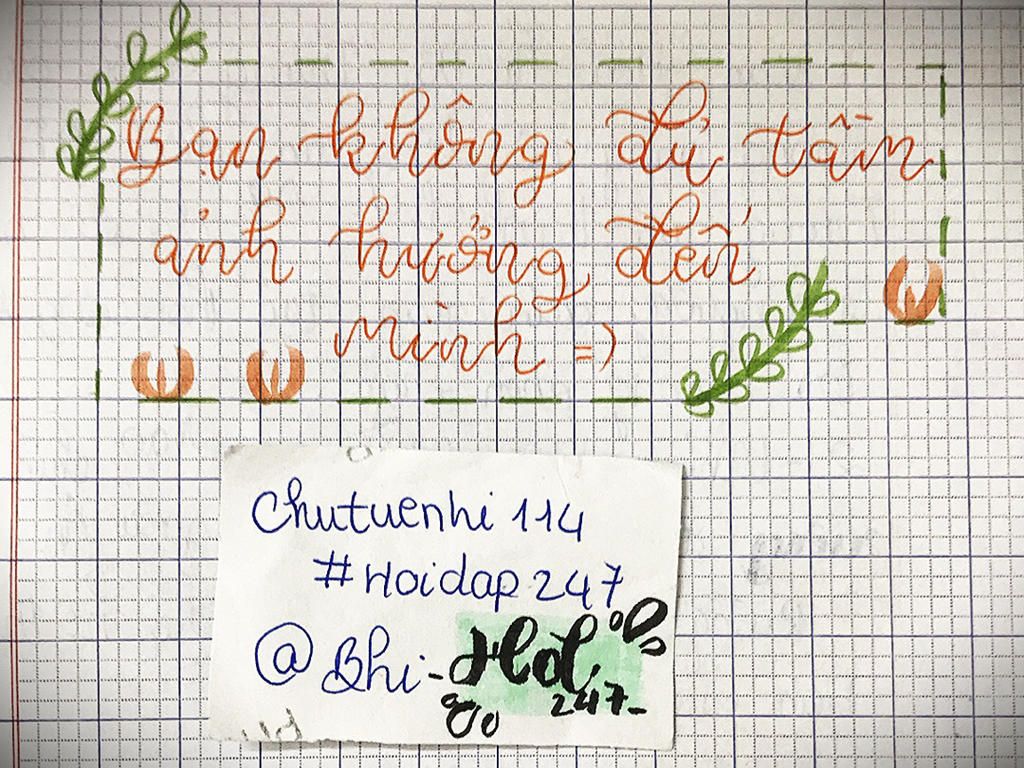 Bạn không đủ tầm
ảnh hưởng đến
mình =)
Chutuenhi 114
#Hoidap247
@Bhi-
247-